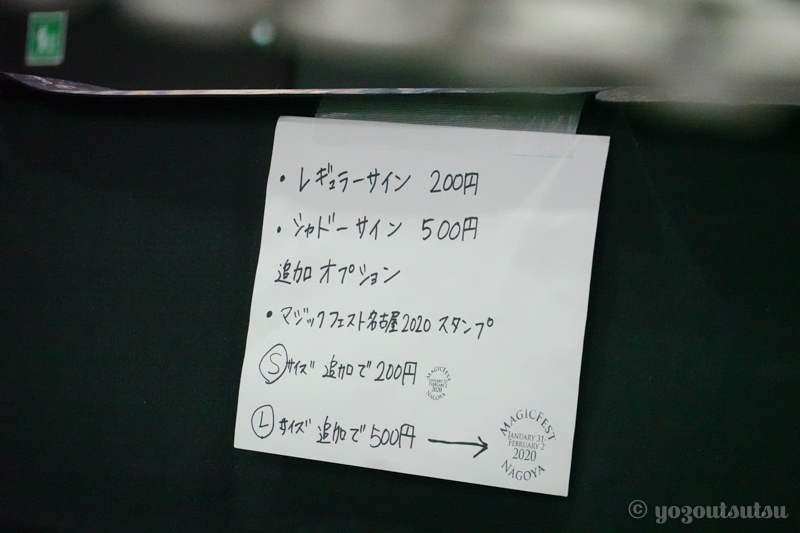 ・レギュラーサイン 200円
・シャドーサイン 500円
追加オプション
・マジックフェスト名古屋2020 スタンプ
Ⓢサイズ 追加で200円
MAGICFEST
JANUARY 31-
FEBRUARY 2
2020
NAGOYA
Ⓛサイズ 追加で500円 →
MAGICFEST
JANUARY 31-
FEBRUARY 2
2020
NAGOYA
© yozoutsutsu